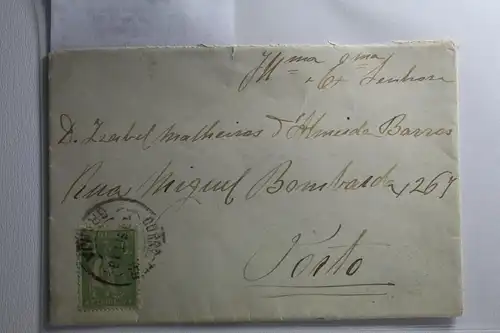 Illma e Exma
Senhora
D. Izabel Malheiros d'Almeida Barros
Rua Miguel Bombarda, 267
Porto